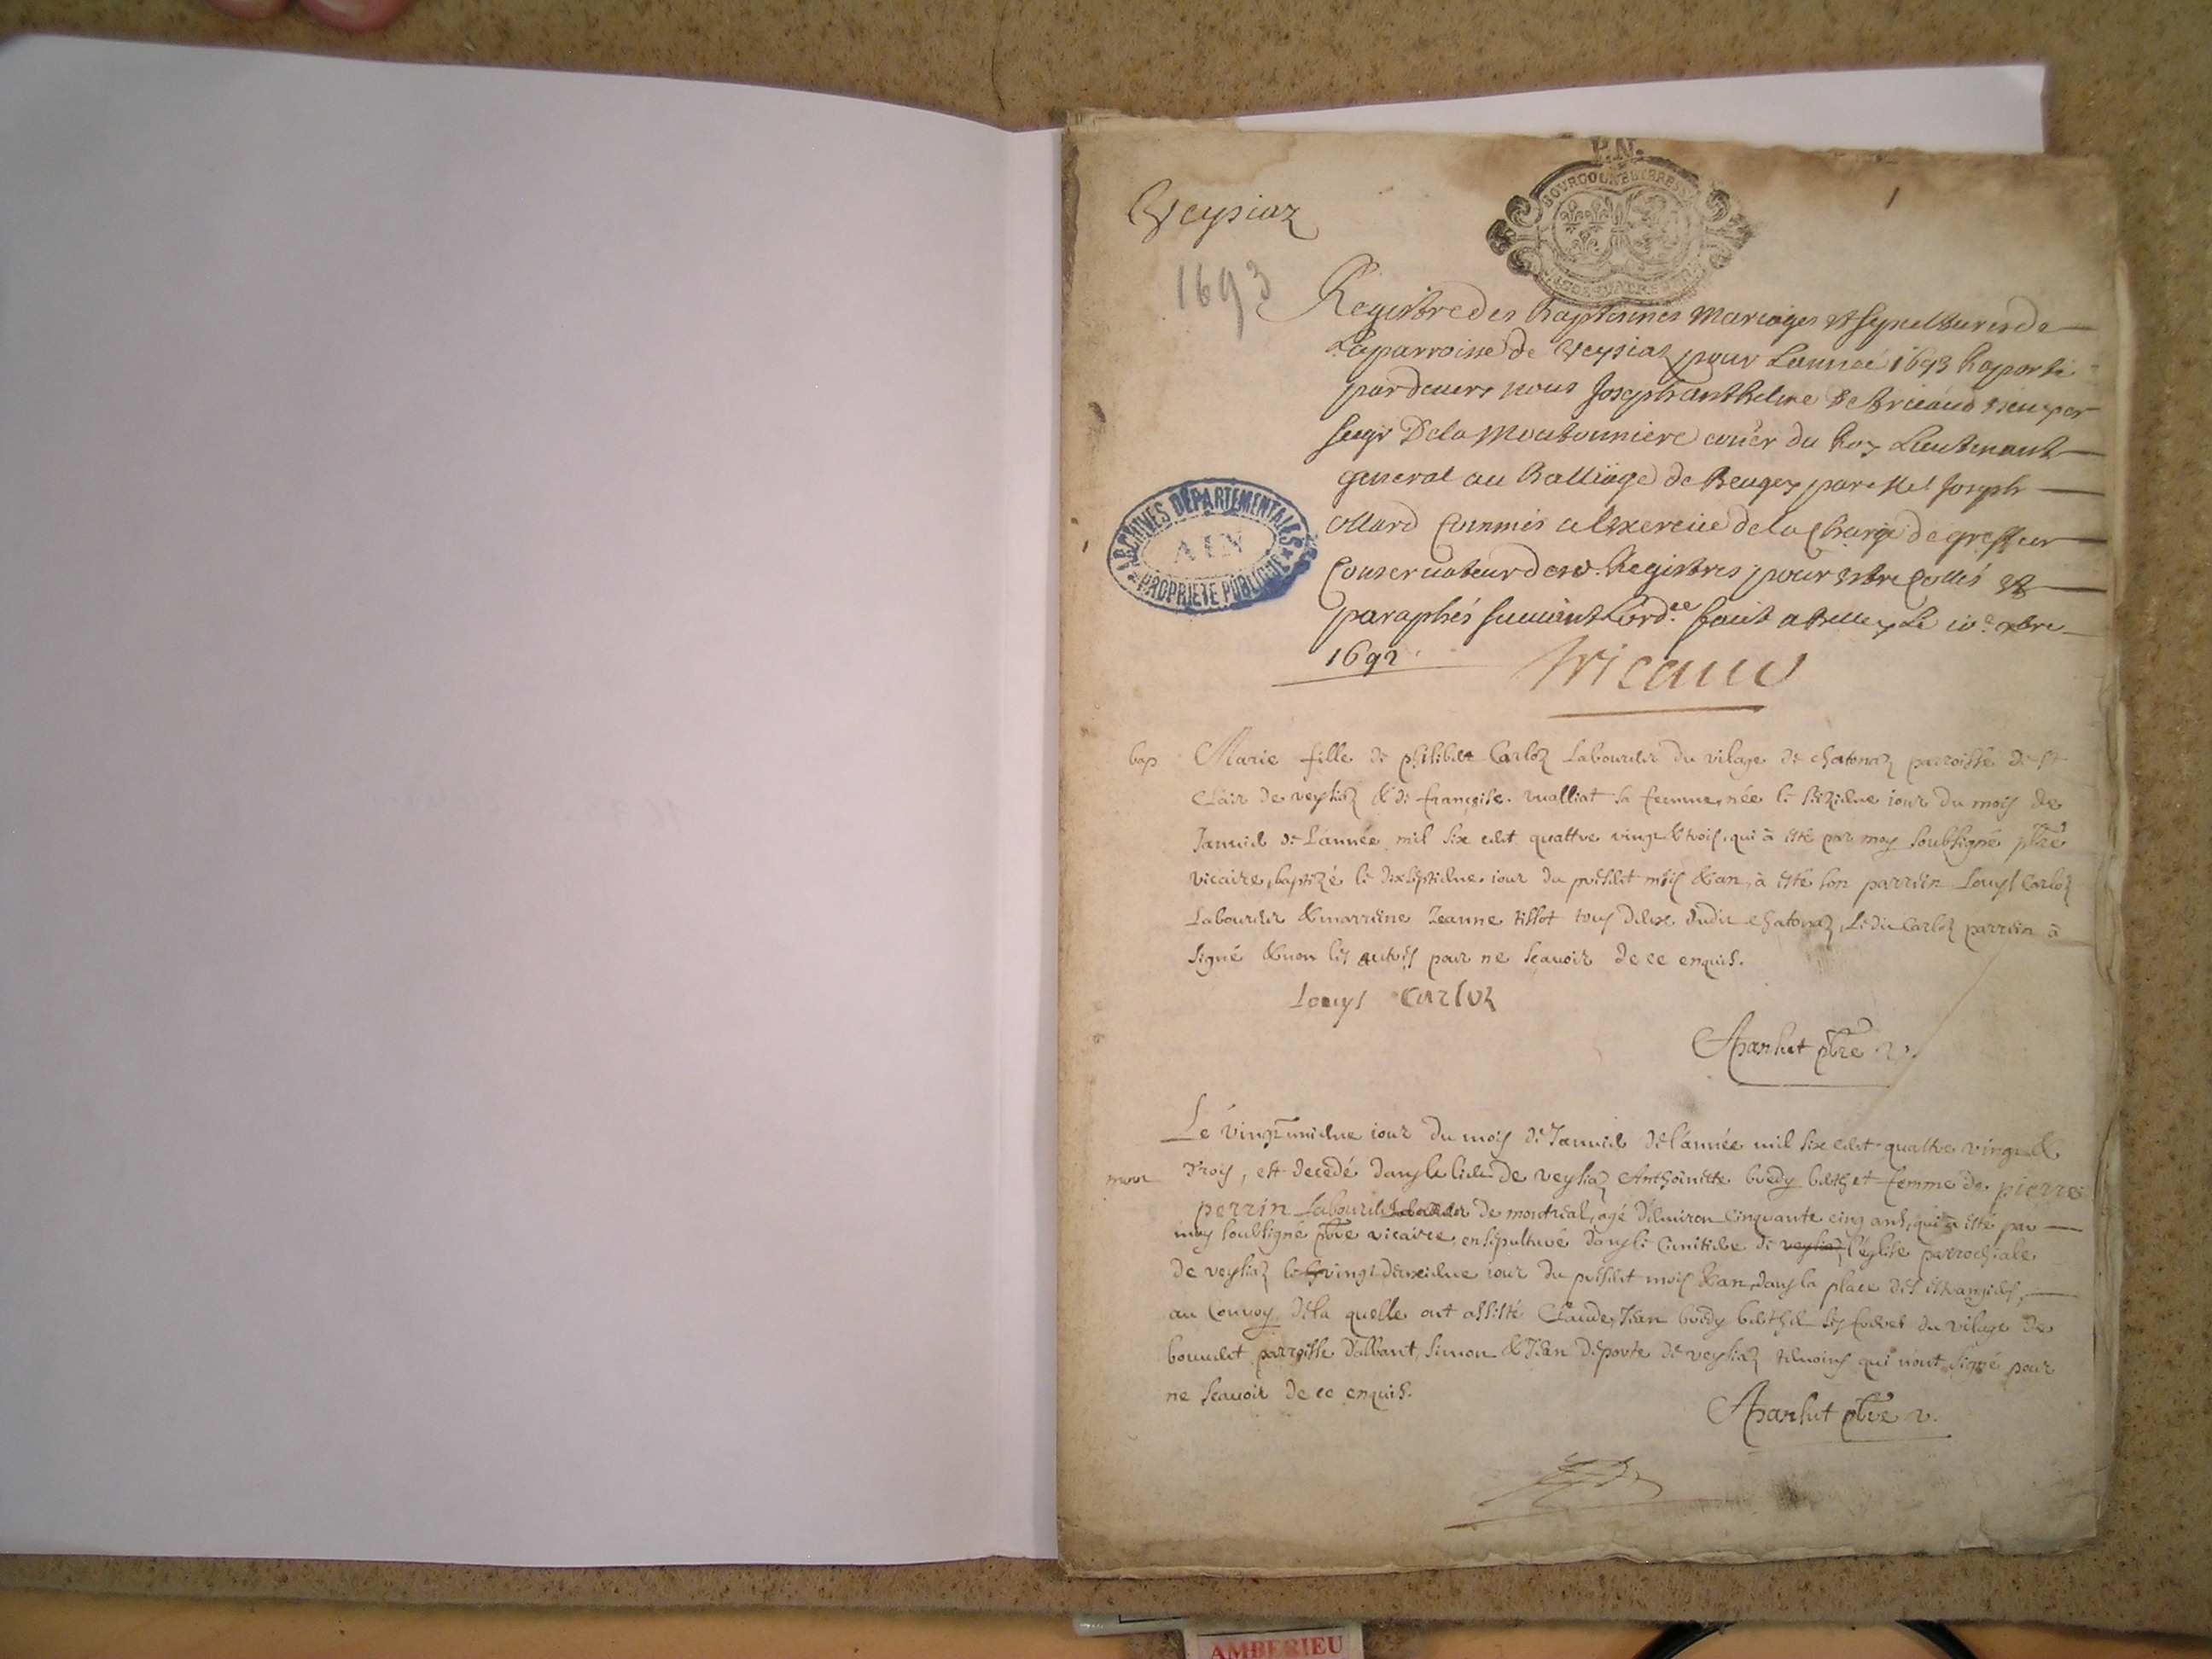 P.N.
BOURGOGNE ET BRESSE
1
Veysiaz
1693
Registre des Baptesmes Mariages et sepultures de
La parroisse de Veysiaz pour Lannée 1693 Raporté
pardeuers nous Joseph Anthelme de Tricaud
seigr De la Moutonniere coner du Roy Lieutenant
general au Balliage de Beugey par Mre Joseph
Collard Commis a lexercice de la charge de greffier
Conservateur desd. Registres pour estre Cottés et
paraphés suiuant Lord.ce fait a Belley Le 10e xbre
1692
Tricaud
ARCHIVES DÉPARTEMENTALES
AIN
PROPRIÉTÉ PUBLIQUE
bap Marie fille de philibert Carloz Laboureur du vilage de chatonaz parroisse de St
Clair de veysiaz & de françoise vualliat sa femme, née le seizieme iour du mois de
Januier de L'année mil six cent quattre vingt & trois, qui à esté par moy soubsigné ptre
vicaire, baptizé le dixseptieme iour du present mois & an, à esté son parrein Louys Carloz
Laboureur & marreine Jeanne tissot tous deux dudit chatonaz, Ledit Carloz parrein à
signé & non les autres pour ne scauoir de ce enquis.
Louys Carloz
ptre v.
Le vingt unieme iour du mois de Januier de l'année mil six cent quattre vingt &
trois, est decedé dans le lieu de veysiaz Anthoinette femme de pierre
perrin Laboureur de montreal, agé d'enuiron cinquante cinq ans, qui à esté par
moy soubsigné ptre vicaire ensepulturé dans le cimitiere de veysiaz l'eglise parrochiale
de veysiaz le vingt deuxieme iour du present mois & an, dans la place des estrangiers,
au Conuoy de la quelle ont assisté Claude, Jean ses freres du vilage de
parroisse d'albant, simon & Jean deporte de veysiaz temoins qui n'ont signé pour
ne scauoir de ce enquis.
ptre v.
AMBERIEU